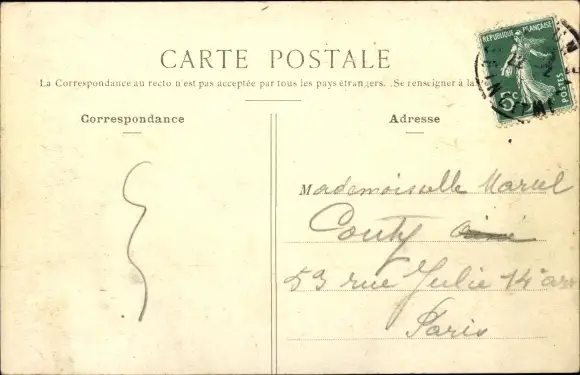 CARTE POSTALE
La Correspondance au recto n'est pas acceptée par tous les pays étrangers. (Se renseigner à la
RÉPUBLIQUE FRANÇAISE
POSTES
5c
Correspondance
Adresse
Mademoiselle Marcel
Couty
53 rue Julie 14e arr
Paris